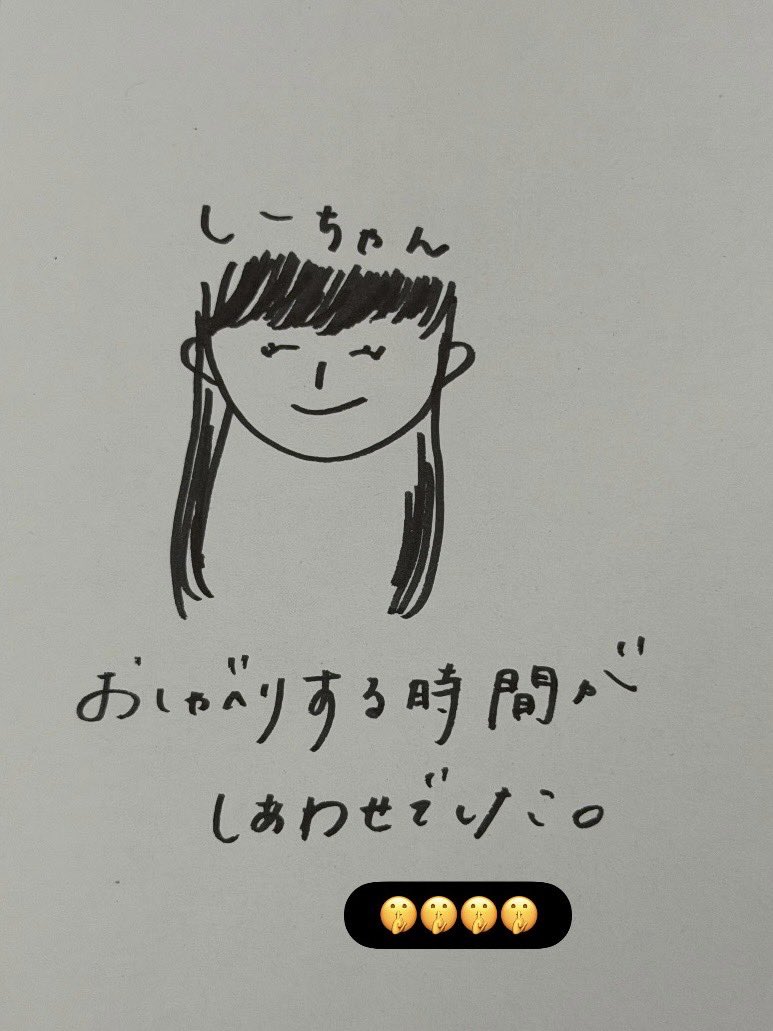 しーちゃん
おしゃべりする時間が
しあわせでした。
🤫🤫🤫🤫